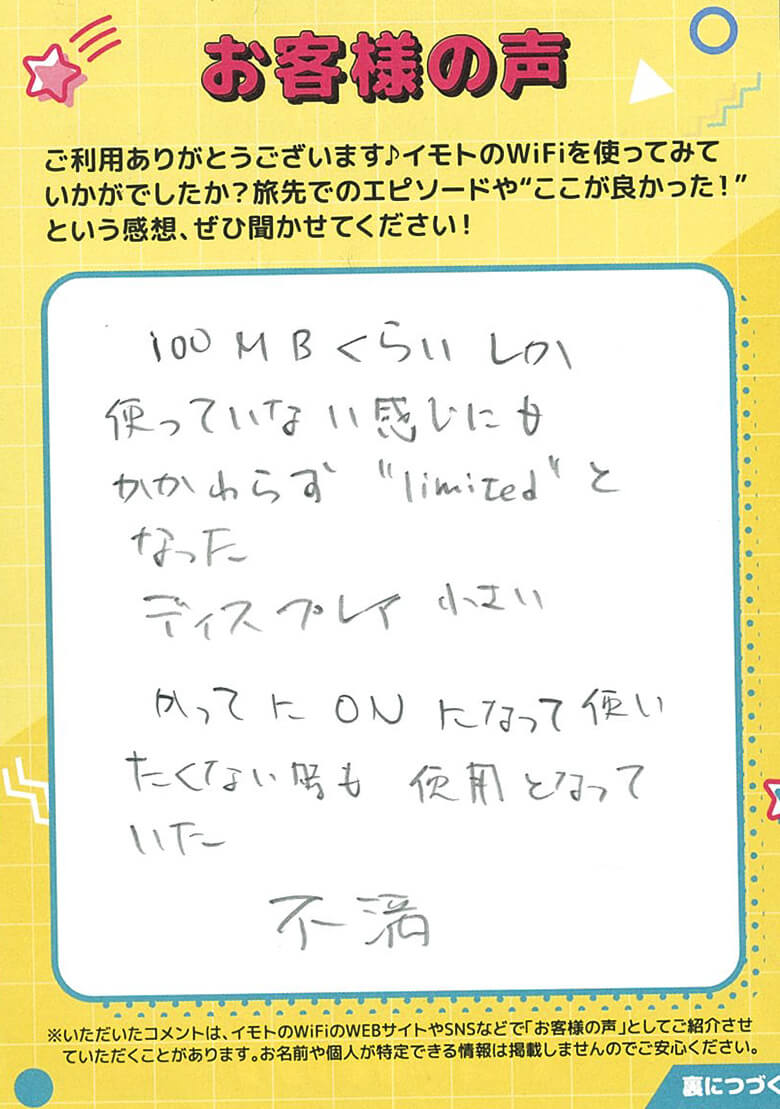 お客様の声
ご利用ありがとうございます♪イモトのWiFiを使ってみて
いかがでしたか？旅先でのエピソードや“ここが良かった！”
という感想、ぜひ聞かせてください！
100MBくらいしか
使っていない感じにも
かかわらず "limited" と
なった
ディスプレイ 小さい
かってに ON になって使い
たくない時も 使用となって
いた
不満
※いただいたコメントは、イモトのWiFiのWEBサイトやSNSなどで「お客様の声」としてご紹介させ
ていただくことがあります。お名前や個人が特定できる情報は掲載しませんのでご安心ください。
裏につづく